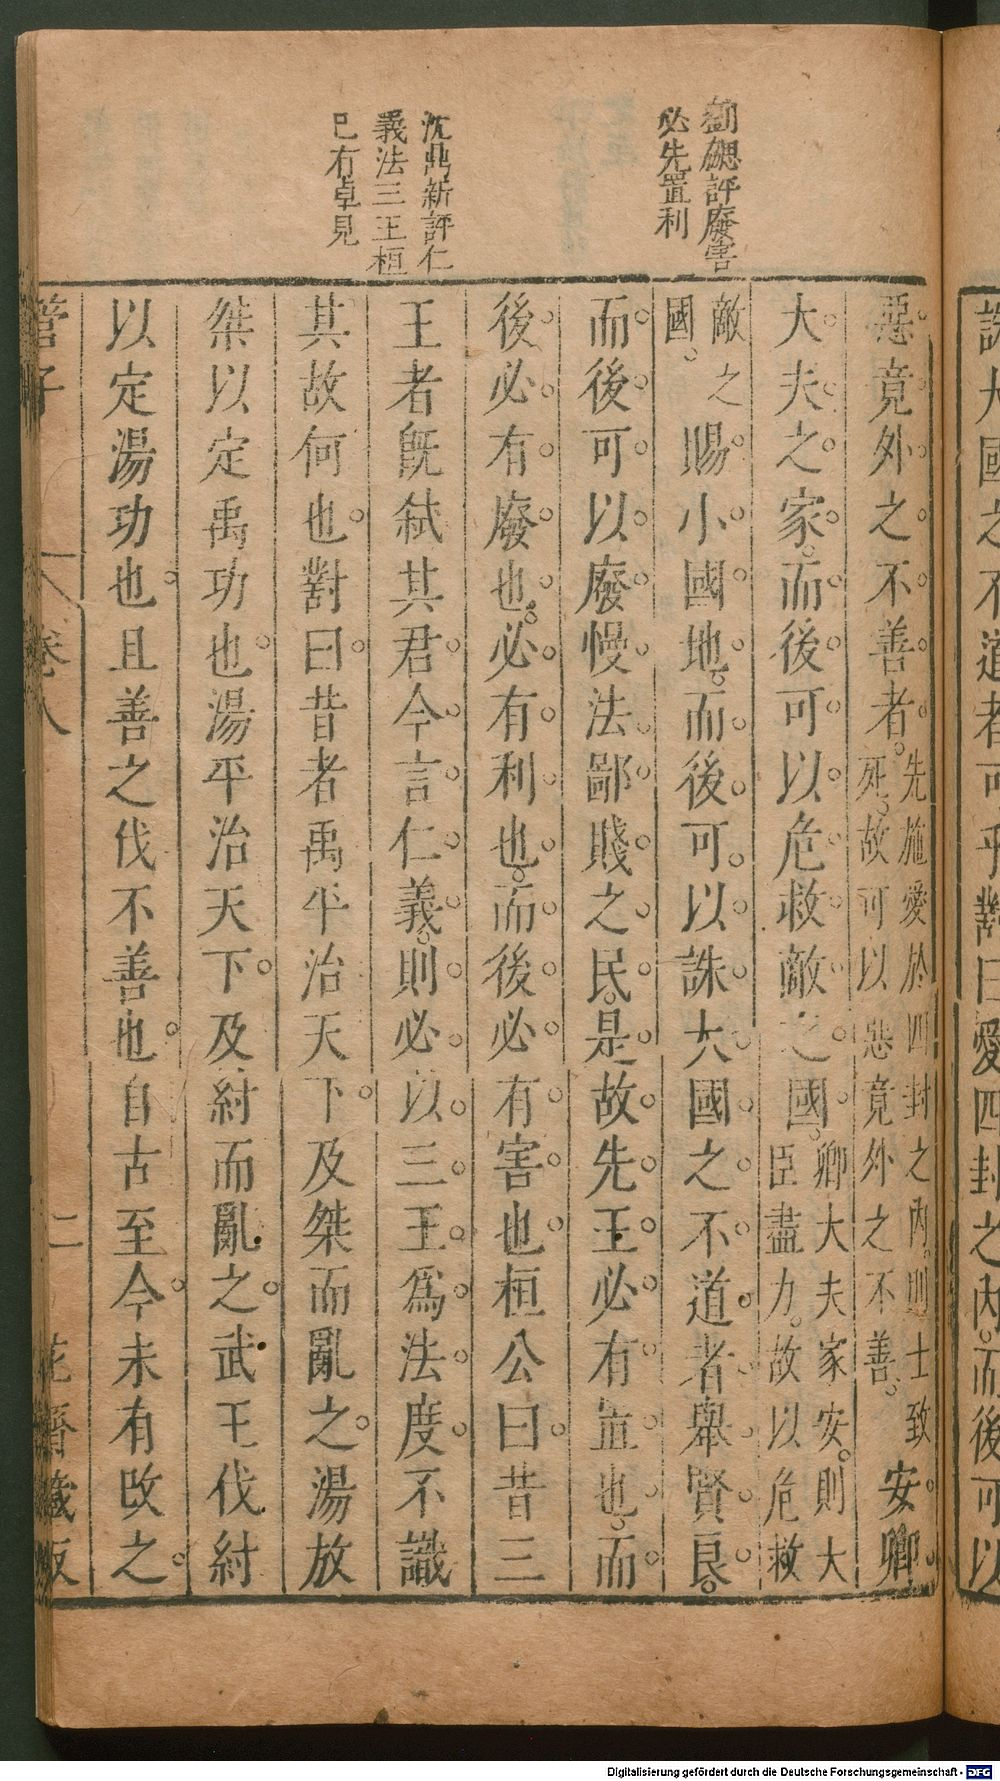 劉勰評廢害
必先置利
沈鼎新評仁
義法三王桓
已有卓見
惡竟外之不善者。先施愛於四封之內。則士致死。故可以惡竟外之不善。安卿
大夫之家。而後可以危救敵之國。卿大夫家安。則大臣盡力。故以危救
敵國。之賜小國地。而後可以誅大國之不道者舉賢良。
而後可以廢慢法鄙賤之民。是故先王必有置也。而
後必有廢也。必有利也。而後必有害也桓公曰昔三
王者旣弒其君今言仁義。則必以三王爲法度不識
其故何也對曰昔者禹平治天下及桀而亂之湯放
桀以定禹功也湯平治天下及紂而亂之武王伐紂
以定湯功也且善之伐不善也自古至今未有改之
管子
卷八
二
花齋藏版
誅大國之不道者可乎對曰愛四封之內。而後可以
Digitalisierung gefördert durch die Deutsche Forschungsgemeinschaft - DFG